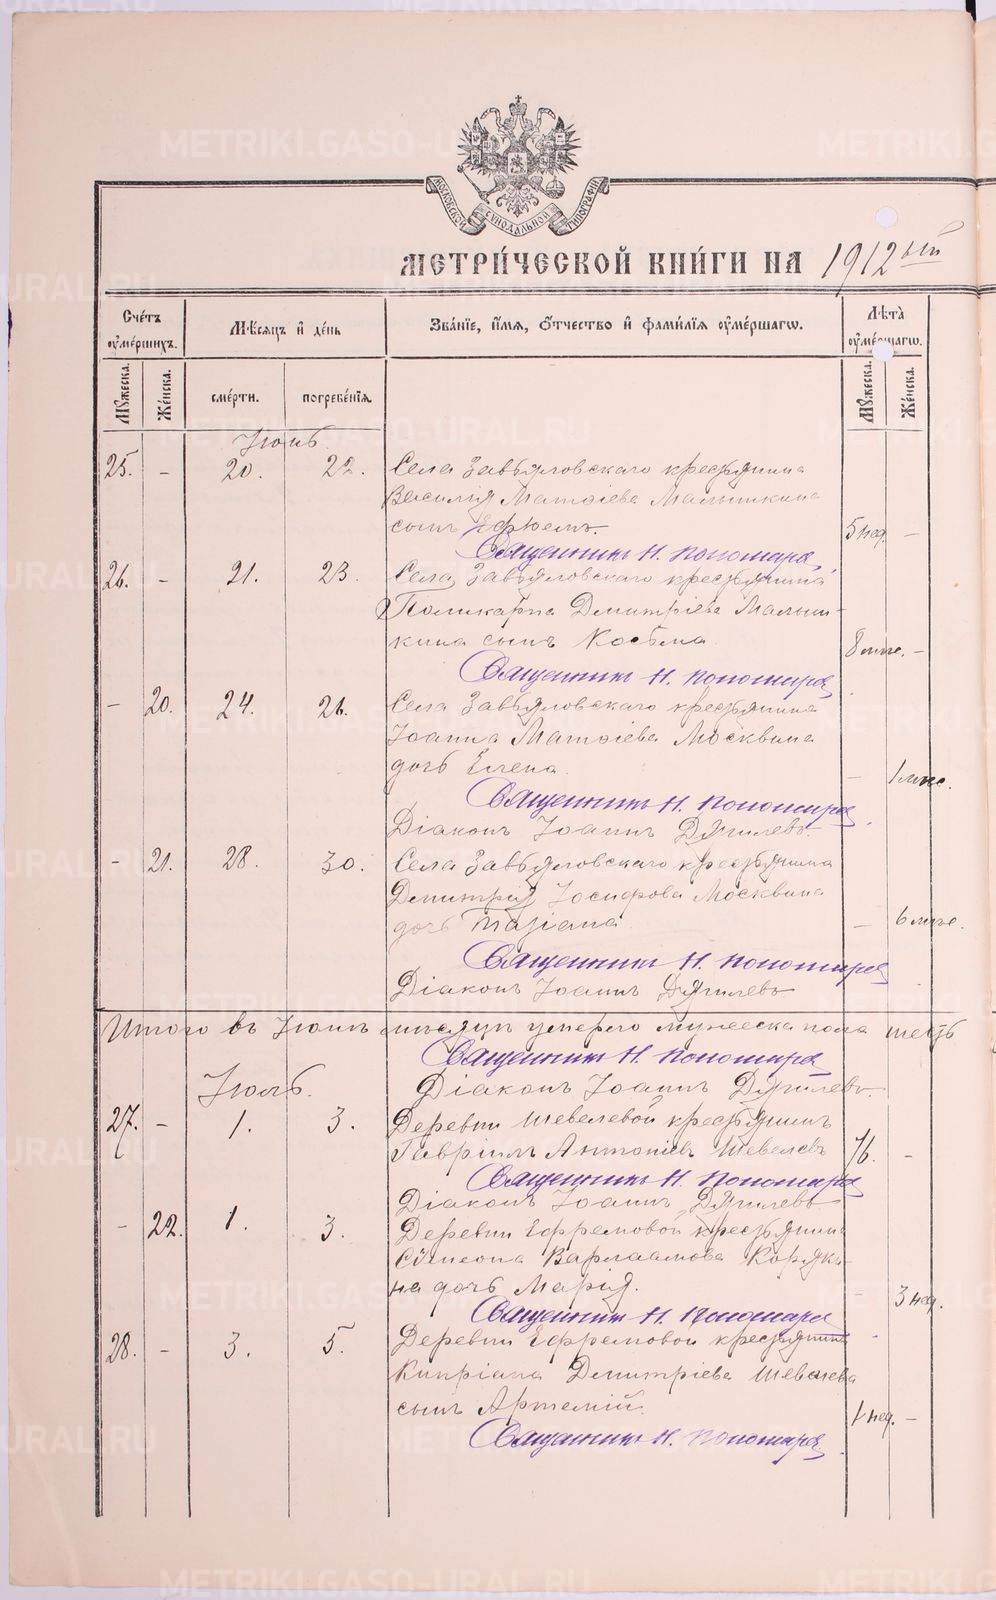 МОСКОВСКОЙ СѴНОДАЛЬНОЙ ТИПОГРАФІИ
МЕТРИ́ЧЕСКОЙ КНИ́ГИ НА 1912ый
Сче́тъ ѹ҆ме́ршихъ.
Мѣ́сяцъ и҆ де́нь
Зва́нїе, и҆́мѧ, ѻ҆́тчество и҆ фами́лїѧ ѹ҆ме́ршагѡ.
Лѣ̑та̀ ѹ҆ме́ршагѡ.
Мꙋ́жеска.
Же́нска.
сме́рти.
погребе́нїѧ.
Мꙋ́жеска.
Же́нска.
Іюнь
25. - 20. 22. Села Завьяловскаго крестьянина
Василія Матѳіева Малышкина
сынъ Ефремъ. 5 нед. -
Священникъ Н. Пономарев
26. - 21. 23. Села Завьяловскаго крестьянина
Поликарпа Димитріева Малыш-
кина сынъ Косьма 8 мѣс. -
Священникъ Н. Пономарев
- 20. 24. 26. Села Завьяловскаго крестьянина
Іоанна Матѳіева Москвина
дочь Елена. - 1 мѣс.
Священникъ Н. Пономарев
Діаконъ Іоаннъ Дягилевъ.
- 21. 28. 30. Села Завьяловскаго крестьянина
Димитрія Іосифова Москвина
дочь Татіана - 6 мѣс.
Священникъ Н. Пономарев
Діаконъ Іоаннъ Дягилевъ
Итого въ Іюнѣ мѣсяцѣ умерло мужеска пола шесть
Священникъ Н. Пономарев
Іюль.
Діаконъ Іоаннъ Дягилевъ.
27. - 1. 3. Деревни Шевелевой крестьянинъ
Гавріилъ Антоніевъ Шевелевъ 76. -
Священникъ Н. Пономарев
Діаконъ Іоаннъ Дягилевъ
- 22. 1. 3. Деревни Ефремовой крестьянина
Сѵмеона Варлаамова Коряки-
на дочь Марія. - 3 нед.
Священникъ Н. Пономарев
28. - 3. 5. Деревни Ефремовой крестьянина
Кипріана Димитріева Шевелева
сынъ Артемій. 1 нед. -
Священникъ Н. Пономарев
METRIKI.GASO-URAL.RU